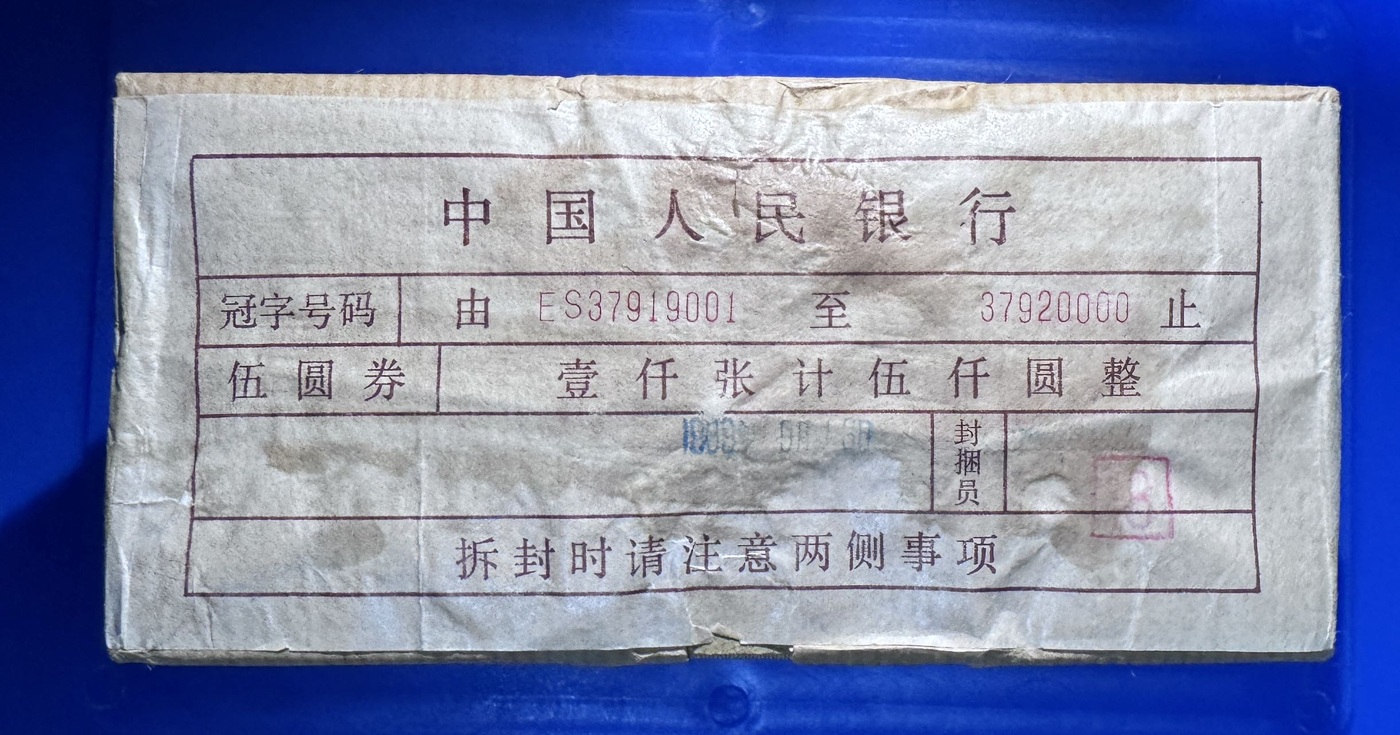 中国人民银行
冠字号码 由 ES37919001 至 37920000 止
伍圆券 壹仟张计伍仟圆整
封捆员
拆封时请注意两侧事项